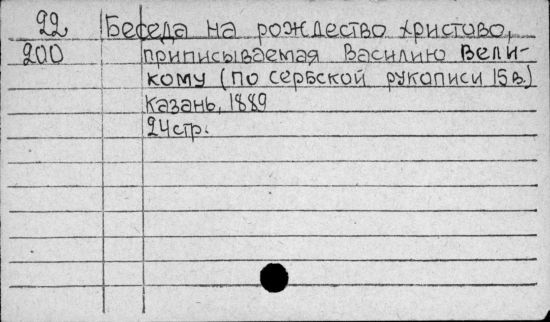 22 Беседа на рождество христово,
200 приписываемая Василию Вели-
кому (по сербской рукописи 15 в.)
Казань, 1889
24 стр.